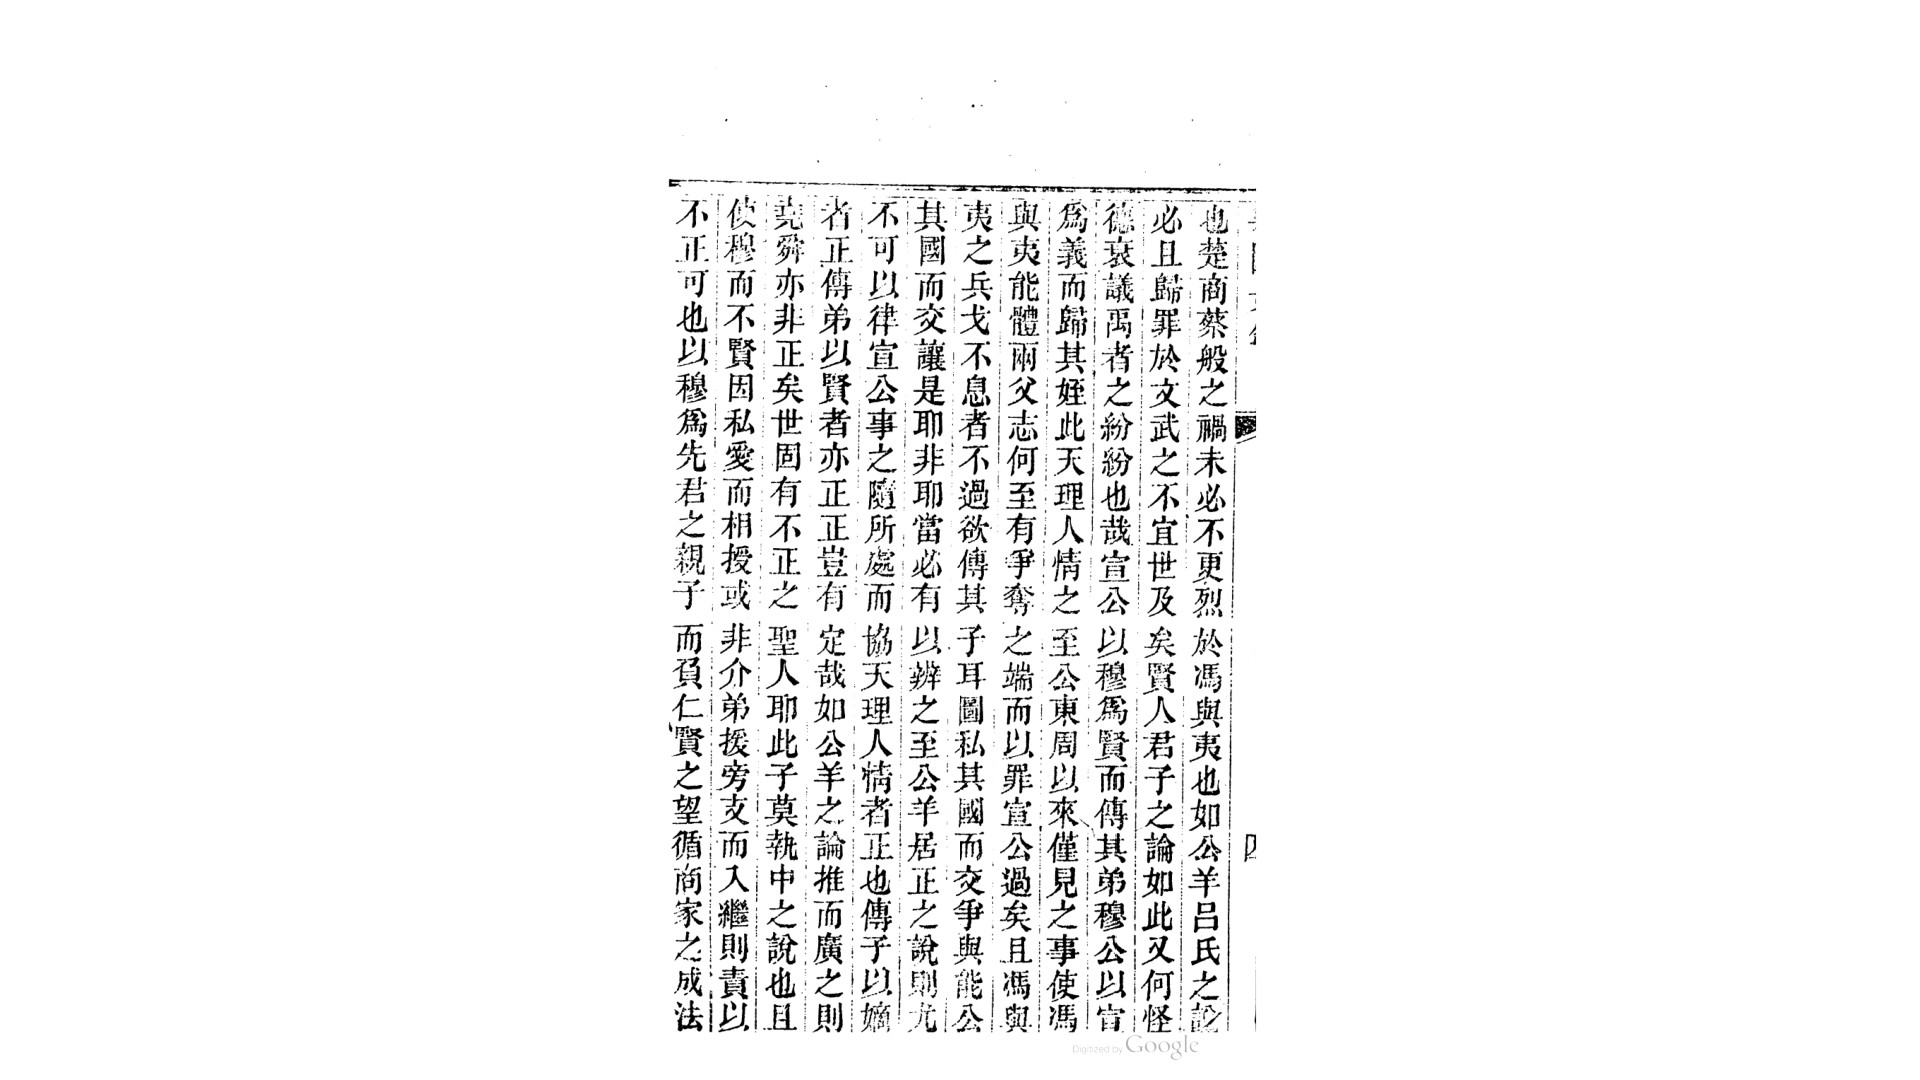 也楚商蔡般之禍未必不更烈於馮與夷也如公羊呂氏之說
必且歸罪於文武之不宜世及矣賢人君子之論如此又何怪
德衰議禹者之紛紛也哉宣公以穆爲賢而傳其弟穆公以宣
爲義而歸其姪此天理人情之至公東周以來僅見之事使馮
與夷能體兩父志何至有爭奪之端而以罪宣公過矣且馮與
夷之兵戈不息者不過欲傳其子耳圖私其國而交爭與能公
其國而交讓是耶非耶當必有以辨之至公羊居正之說則尤
不可以律宣公事之隨所處而協天理人情者正也傳子以嫡
者正傳弟以賢者亦正正豈有定哉如公羊之論推而廣之則
堯舜亦非正矣世固有不正之聖人耶此子莫執中之說也且
使穆而不賢因私愛而相授或非介弟援旁支而入繼則責以
不正可也以穆爲先君之親子而負仁賢之望循商家之成法
四
Digitized by Google